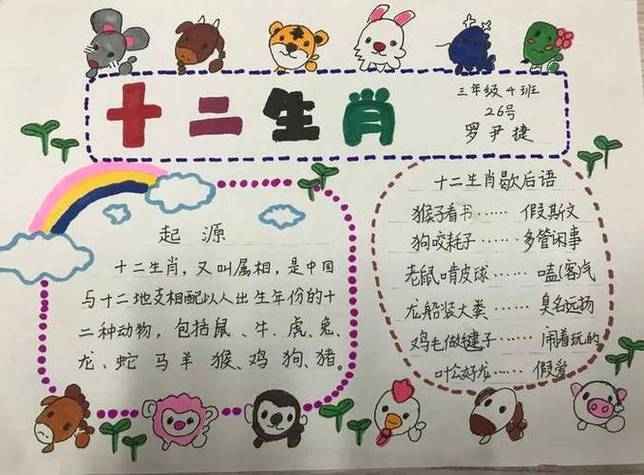 十二生肖
三年级4班
26号
罗尹捷
起源
十二生肖，又叫属相，是中国
与十二地支相配以人出生年份的十
二种动物，包括鼠、牛、虎、兔、
龙、蛇 马 羊 猴、鸡 狗、猪。
十二生肖歇后语
猴子看书…… 假斯文
狗咬耗子…… 多管闲事
老鼠啃皮球…… 嗑(客)气
龙船装大粪…… 臭名远扬
鸡毛做毽子…… 闹着玩的
叶公好龙…… 假爱